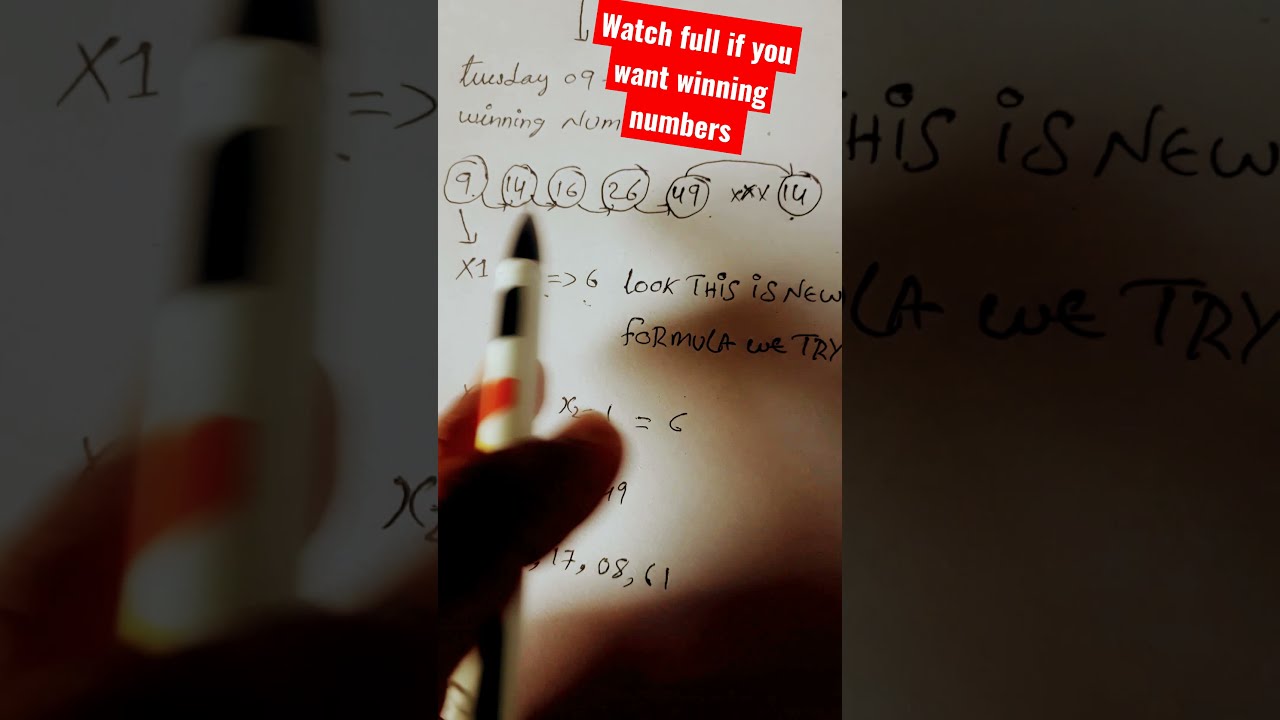 Watch full if you
want winning
numbers
tuesday 09
winning Num
9 14 16 26 49 xxx 14
X1 => 6 LOOK THIS IS NEW
FORMULA WE TRY
x2 = 6
49
17, 08, 61
X1 =>
HIS IS NEW
LA WE TRY